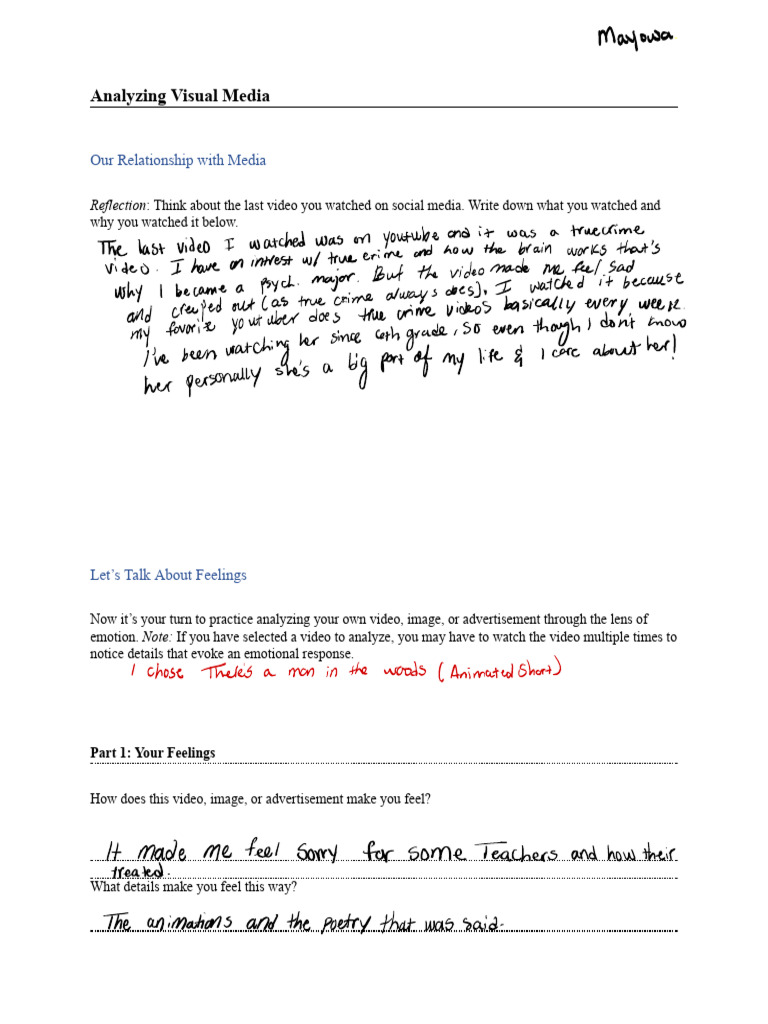 Mayowa
Analyzing Visual Media
Our Relationship with Media
Reflection: Think about the last video you watched on social media. Write down what you watched and
why you watched it below.
The last video I watched was on youtube and it was a truecrime
video. I have an intrest w/ true crime and how the brain works that's
why I became a psych. major. But the video made me feel sad
and creeped out (as true crime always does). I watched it because
my favorite youtuber does true crime videos basically every week.
I've been watching her since 6th grade, so even though I don't know
her personally she's a big part of my life & I care about her!
Let's Talk About Feelings
Now it's your turn to practice analyzing your own video, image, or advertisement through the lens of
emotion. Note: If you have selected a video to analyze, you may have to watch the video multiple times to
notice details that evoke an emotional response.
I chose There's a man in the woods (Animated Short)
Part 1: Your Feelings
How does this video, image, or advertisement make you feel?
It made me feel sorry for some Teachers and how their
treated.
What details make you feel this way?
The animations and the poetry that was said.